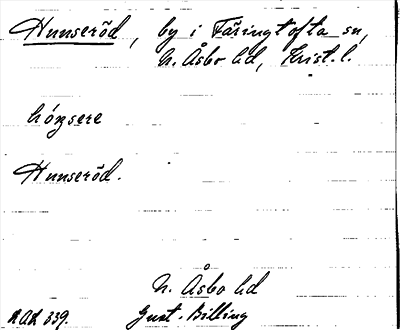 Hunseröd, by i Färingtofta sn,
N. Åsbo hd, Krist. l.
hónsere
Hunseröd.
N. Åsbo hd
RAÄ 339. Gust. Billing